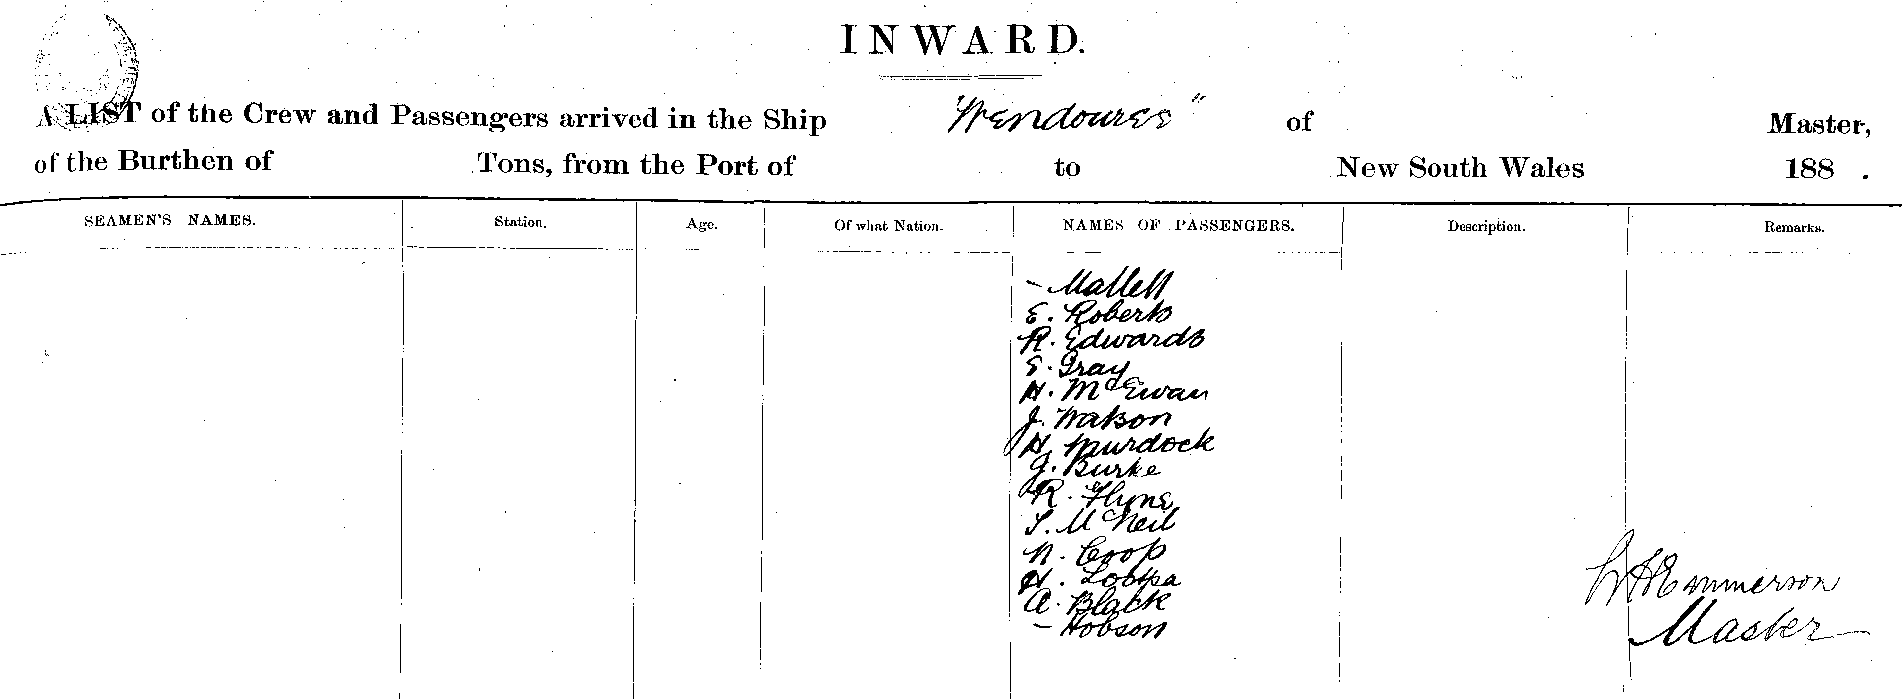 INWARD.
A LIST of the Crew and Passengers arrived in the Ship "Wendouree" of Master,
of the Burthen of Tons, from the Port of to New South Wales 188 .
SEAMEN'S NAMES. Station. Age. Of what Nation. NAMES OF PASSENGERS. Description. Remarks.
- Mallett
E. Roberts
R. Edwards
E. Gray
H. McEwan
J. Watson
H. Murdock
J. Burke
R. Flyne
S. McNeil
N. Coop
H.
A. Black
- Hobson
WH Emmerson
Master